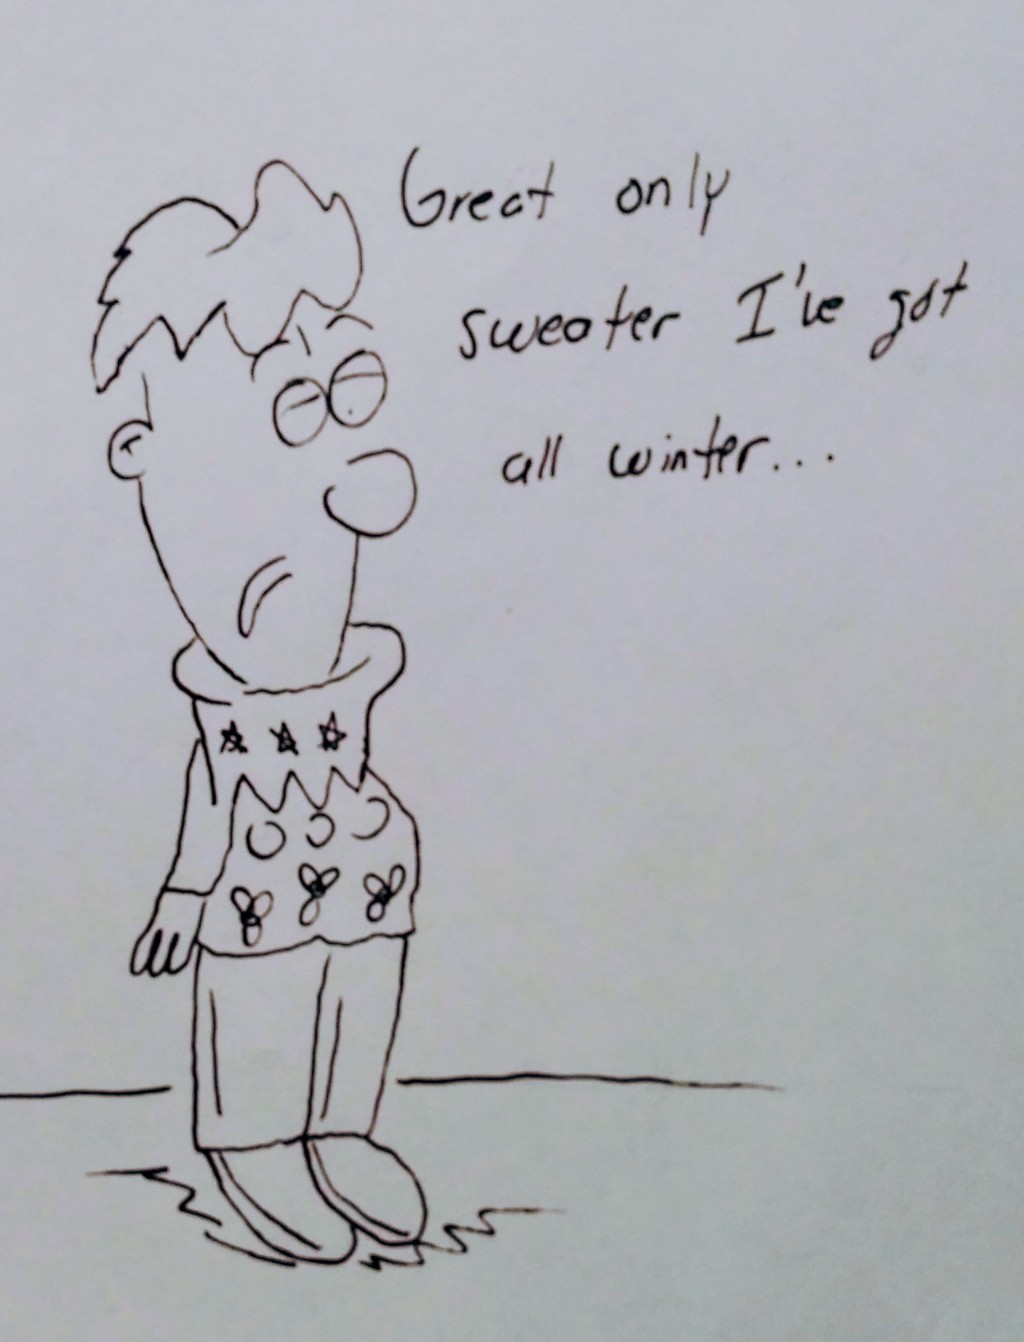 Great only
sweater I've got
all winter...